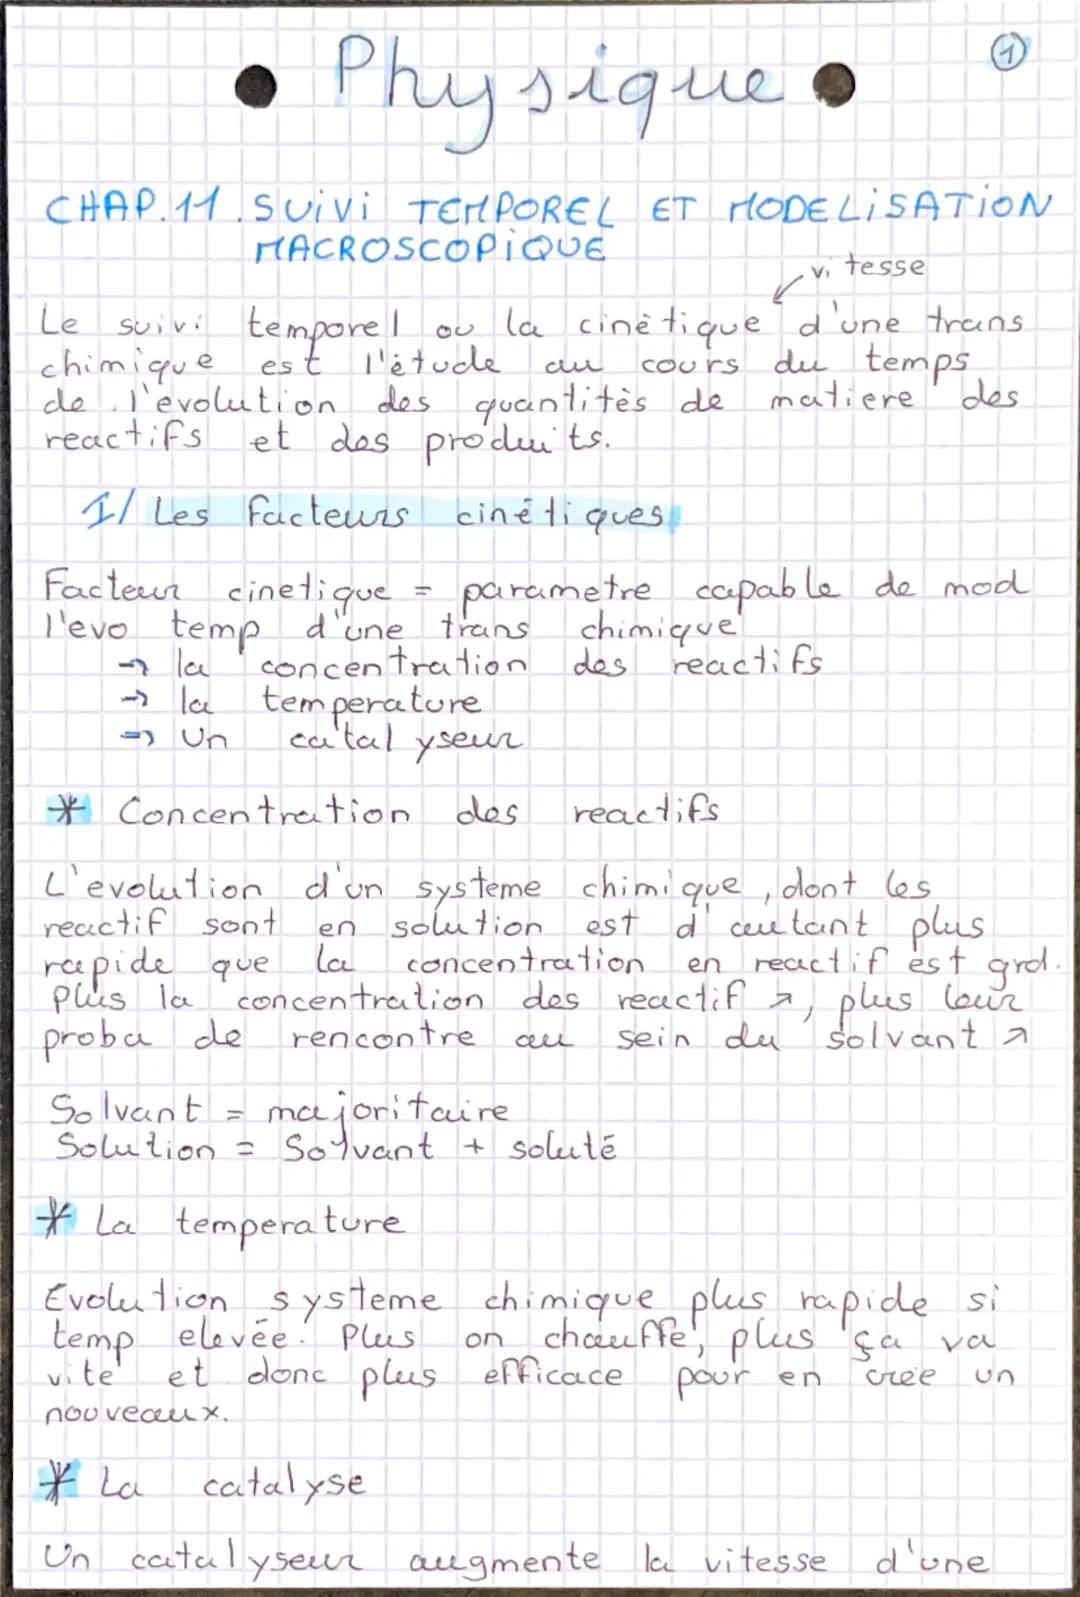 • Physique •
①
CHAP.11. SUiVi TEMPOREL ET MODELiSATiON
MACROSCOPiQUE
vitesse
Le suivi temporel ou la cinètique d'une trans
chimique est l'ètude au cours du temps
de l'evolution des quantitès de matiere des
reactifs et des produits.
I/ Les facteurs cinétiques
Facteur cinetique = parametre capable de mod
l'evo temp d'une trans chimique
→ la concentration des reactifs
→ la temperature
⇒ Un catalyseur
* Concentration des reactifs
L'evolution d'un systeme chimique, dont les
reactif sont en solution est d'autant plus
rapide que la concentration en reactif est grd.
Plus la concentration des reactif ↗, plus leur
proba de rencontre au sein du solvant ↗
Solvant = majoritaire
Solution = Solvant + soluté
* La temperature
Evolution systeme chimique plus rapide si
temp elevée. Plus on chauffe, plus ça va
vite et donc plus efficace pour en crée un
nouveaux.
* La catalyse
Un catalyseur augmente la vitesse d'une